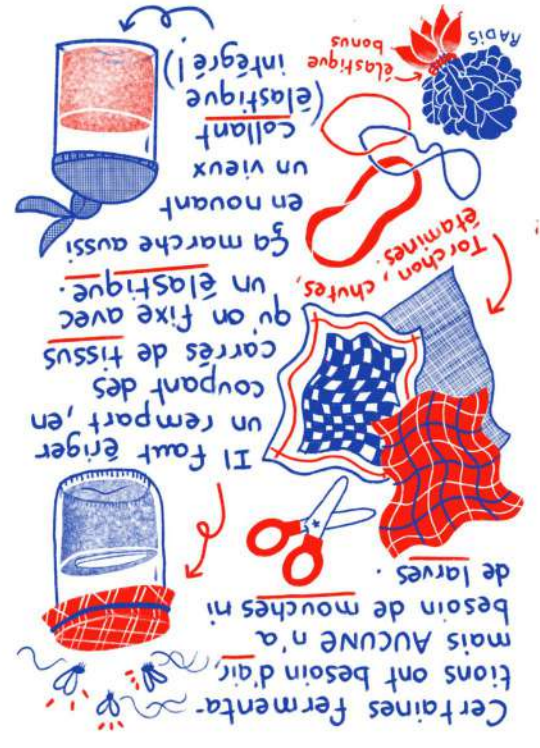 Certaines fermenta-
tions ont besoin d'air,
mais AUCUNE n'a
besoin de mouches ni
de larves.
Il faut ériger
un rempart, en
coupant des
carrés de tissus
qu'on fixe avec
un élastique.
Torchon, chutes,
étamines.
Ça marche aussi
en nouant
un vieux
collant
(élastique
intégré!)
élastique
bonus
RADIS